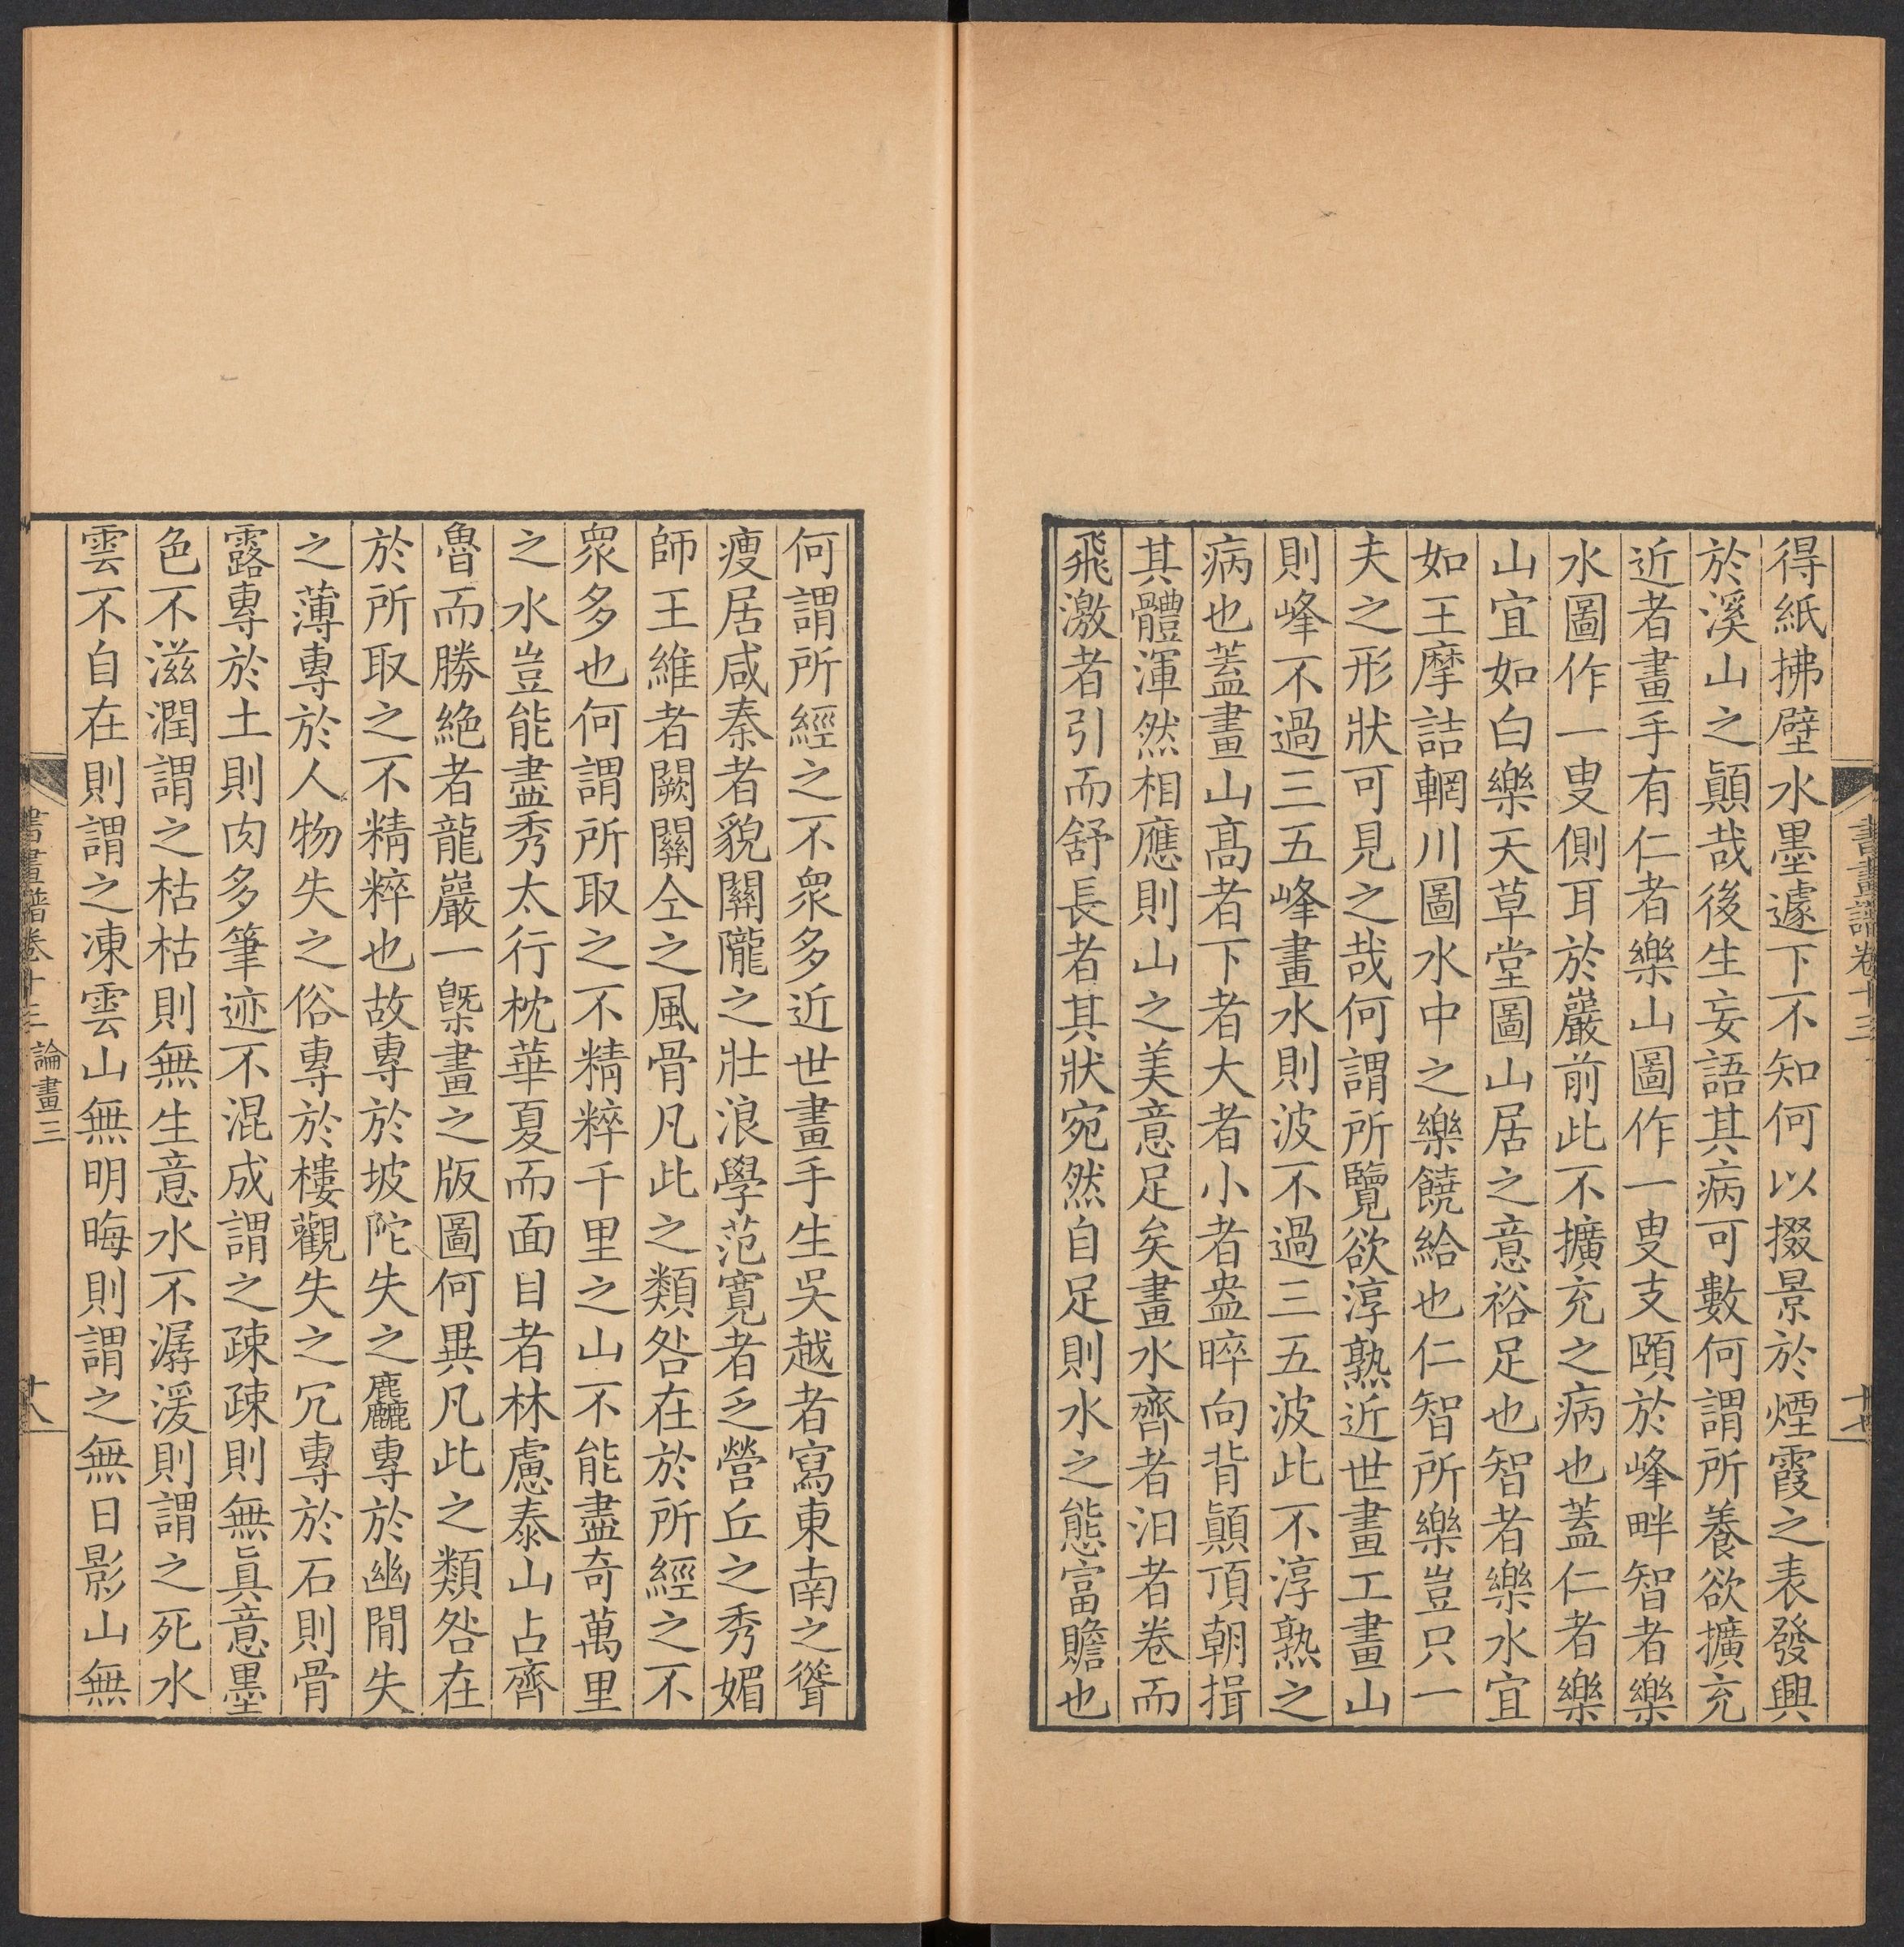 得紙拂壁水墨遽下不知何以掇景於煙霞之表發興
於溪山之顚哉後生妄語其病可數何謂所養欲擴充
近者畫手有仁者樂山圖作一叟支頤於峰畔智者樂
水圖作一叟側耳於巖前此不擴充之病也蓋仁者樂
山宜如白樂天草堂圖山居之意裕足也智者樂水宜
如王摩詰輞川圖水中之樂饒給也仁智所樂豈只一
夫之形狀可見之哉何謂所覽欲淳熟近世畫工畫山
則峰不過三五峰畫水則波不過三五波此不淳熟之
病也蓋畫山髙者下者大者小者盎睟向背顚頂朝揖
其體渾然相應則山之美意足矣畫水齊者汨者卷而
飛激者引而舒長者其狀宛然自足則水之態富贍也
書畫譜卷十三
十七
何謂所經之不衆多近世畫手生吳越者寫東南之聳
瘦居咸秦者貌關隴之壯浪學范寬者乏營丘之秀媚
師王維者闕關仝之風骨凡此之類咎在於所經之不
衆多也何謂所取之不精粹千里之山不能盡奇萬里
之水豈能盡秀太行枕華夏而面目者林慮泰山占齊
魯而勝絶者龍巖一槩畫之版圖何異凡此之類咎在
於所取之不精粹也故專於坡陀失之麤專於幽閒失
之薄專於人物失之俗專於樓觀失之冗專於石則骨
露專於土則肉多筆迹不混成謂之疎疎則無眞意墨
色不滋潤謂之枯枯則無生意水不潺湲則謂之死水
雲不自在則謂之凍雲山無明晦則謂之無日影山無
書畫譜卷十三 論畫三
十八